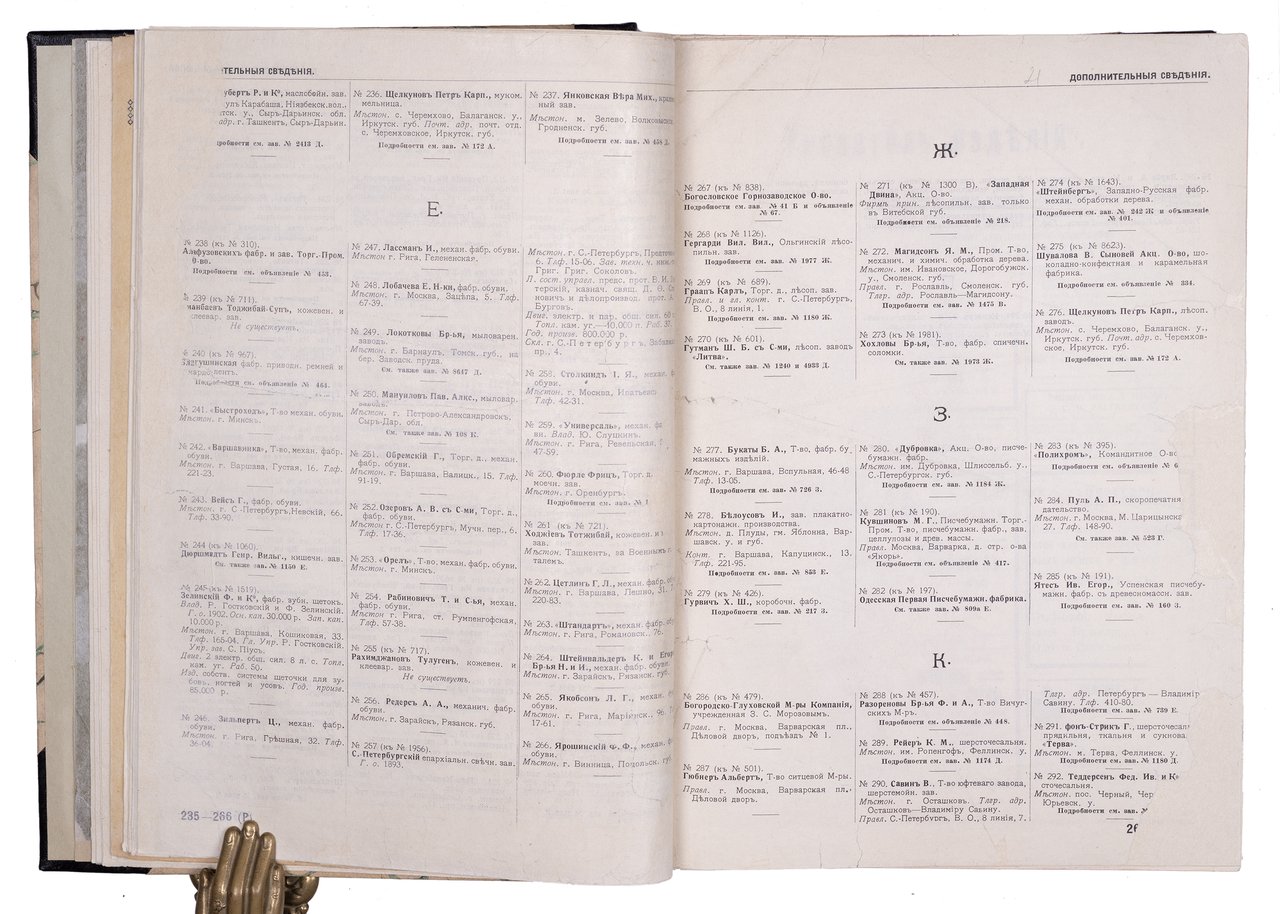 ТЕЛЬНЫЯ СВѢДѢНІЯ.
убертъ Р. и Кº, маслобойн. зав.
улъ Карабаша, Ніязбекск.вол.,
тск. у., Сыръ-Дарьинск. обл.
адр. г. Ташкент, Сыръ-Дарьин.
робности см. зав. № 2413 Д.
№ 236. Щелкуновъ Петръ Карп., муком.
мельница.
Мѣстон. с. Черемхово, Балаганск. у.,
Иркутск. губ. Почт. адр. почт. отд.
с. Черемховское, Иркутск. губ.
Подробности см. зав. № 172 А.
№ 237. Янковская Вѣра Мих.,
ный зав.
Мѣстон. м. Зелево, Волковыск.
Гродненск. губ.
Подробности см. зав. № 458 Д.
Е.
№ 238 (къ № 310).
Алафузовскихъ фабр. и зав. Торг.-Пром.
О-во.
Подробности см. объявленіе № 453.
№ 239 (къ № 711).
манбаевъ Тоджибай-Супъ, кожевен. и
клеевар. зав.
Не существуетъ.
№ 240 (къ № 967).
фабр. приводн. ремней и
лентъ.
Подробности см. объявленіе № 464.
№ 241. «Быстроходъ», Т-во механ. обуви.
Мѣстон. г. Минскъ.
№ 242. «Варшавянка», Т-во, механ. фабр.
обуви.
Мѣстон. г. Варшава, Густая, 16. Тлф.
221-23.
№ 243. Вейсъ Г., фабр. обуви.
Мѣстон. г. С -Петербургъ,Невскій, 66.
Тлф. 33-90.
№ 244 (къ № 1060).
Дюршмидтъ Генр. Вильг., кишечн. зав.
См. также зав. № 1150 Е.
№ 245 (къ № 1519).
Зелинскій Ф. и Кº, фабр. зубн. щетокъ.
Влад. Р. Гостковскій и Ф. Зелинскій.
Г. о. 1902. Осн. кап. 30.000 р. Зап. кап.
10.000 р.
Мѣстон. г. Варшава, Кошиковая, 33.
Тлф. 165-04. Гл. Упр. Р. Гостковскій.
Упр. зав. С. Піусъ.
Двиг. 2 электр. общ. сил. 8 л. с. Топл.
кам. уг. Раб. 50.
Изд. собств. системы щеточки для зу-
бовъ, ногтей и усовъ. Год. произв.
85.000 р.
№ 246. Зильпертъ Ц., механ. фабр.
обуви.
Мѣстон. г. Рига, Грѣшная, 32. Тлф.
36-04.
№ 247. Лассманъ И., механ. фабр. обуви.
Мѣстон. г. Рига, Гелененская.
№ 248. Лобачева Е. Н-ки, фабр. обуви.
Мѣстон. г. Москва, Зацѣпа, 5. Тлф.
67-39.
№ 249. Локотковы Бр-ья, мыловарен.
заводъ.
Мѣстон. г. Барнаулъ, Томск. губ., на
бер. Заводск. пруда.
См. также зав. № 8647 Д.
№ 250. Мануиловъ Пав. Алкс., мыловар.
заводъ.
Мѣстон. г. Петрово-Александровскъ,
Сыръ-Дар. обл.
См. также зав. № 108 К.
№ 251. Обремскій Г., Торг. д., механ.
фабр. обуви.
Мѣстон. г. Варшава, Валицк., 15. Тлф.
91-19.
№ 252. Озеровъ А. В. съ С-ми, Торг. д.,
фабр. обуви.
Мѣстон. г. С.-Петербургъ, Мучн. пер., 6.
Тлф. 17-36.
№ 253. «Орелъ», Т-во. механ. фабр. обуви.
Мѣстон. г. Минскъ.
№ 254. Рабиновичъ Т. и С-ья, механ.
фабр. обуви.
Мѣстон. г. Рига, ст. Румпенгофская,
Тлф. 57-38.
№ 255 (къ № 717).
Рахимджановъ Тулугенъ, кожевен. и
клеевар. зав.
Не существуетъ.
№ 256. Редерсъ А. А., механич. фабр.
обуви.
Мѣстон. г. Зарайскъ, Рязанск. губ.
№ 257 (къ № 1956).
С.-Петербургскій епархіальн. свѣчн. зав.
Г. о. 1893.
Мѣстон. г. С.-Петербургъ, Предтеч
6. Тлф. 15-06. Зав. техн. ч.
Григ. Григ. Соколовъ.
Л. сост. управл. предс. прот. В. И.
терскій, казнач. свящ. П. Ө.
новичъ и дѣлопроизвод. прот.
Бурговъ.
Двиг. электр. и пар. общ. сил. 60
Топл. кам. уг.—40.000 п. Раб. 37.
Год. произв. 800.000 р.
Скл. г. С.-Петербургъ, Забалкан
пр., 4.
№ 258. Столкиндъ І. Я., механ.
обуви.
Мѣстон. г. Москва, Ипатьевск
Тлф. 42-31.
№ 259. «Универсаль», механ. фа
ви. Влад. Ю. Слушкинъ.
Мѣстон. г. Рига, Ревельская,
47-59.
№ 260. Фюрле Фрицъ, Торг. д.
моечн. зав.
Мѣстон. г. Оренбургъ.
Подробности см. зав. № 1
№ 261 (къ № 721).
Ходжіевъ Тотжибай, кожевен. и
зав.
Мѣстон. Ташкентъ, за Военнымъ г
талемъ.
№ 262. Цетлинъ Г. Л., механ. фабр. об
Мѣстон. г. Варшава, Лешно, 31.
220-83.
№ 263. «Штандартъ», механ. фабр. об
Мѣстон. г. Рига, Романовск., 76.
№ 264. Штейнвальдеръ К. и Егор
Бр-ья Н. и И., механ. фабр. обуви.
Мѣстон. г. Зарайскъ, Рязанск. губ.
№ 265. Якобсонъ Л. Г., механ.
Мѣстон. г. Рига, Маріинск., 96.
17-61.
№ 266. Ярошинскій Ф. Ф., механ. ф
обуви.
Мѣстон. г. Винница, Подольск. губ
235—266 (Р)
ДОПОЛНИТЕЛЬНЫЯ СВѢДѢНІЯ.
21
Ж.
№ 267 (къ № 838).
Богословское Горнозаводское О-во.
Подробности см. зав. № 41 Б и объявленіе
№ 67.
№ 268 (къ № 1126).
Гергарди Вил. Вил., Ольгинскій лѣсо-
пильн. зав.
Подробности см. зав. № 1977 Ж.
№ 269 (къ № 689).
Граапъ Карлъ, Торг. д., лѣсоп. зав.
Правл. и гл. конт. г. С.-Петербургъ,
В. О., 8 линія, 1.
Подробности см. зав. № 1180 Ж.
№ 270 (къ № 601).
Гутманъ Ш. Б. съ С-ми, лѣсоп. заводъ
«Литва».
См. также зав. № 1240 и 4933 Д.
№ 271 (къ № 1300 В). «Западная
Двина», Акц. О-во.
Фирмѣ прин. лѣсопильн. зав. только
въ Витебской губ.
Подробности см. объявленіе № 218.
№ 272. Магидсонъ Я. М., Пром. Т-во,
механич. и химич. обработка дерева.
Мѣстон. им. Ивановское, Дорогобужск.
у., Смоленск. губ.
Правл. г. Рославль, Смоленск. губ.
Тлгр. адр. Рославль—Магидсону.
Подробности см. зав. № 1475 В.
№ 273 (къ № 1981).
Хохловы Бр-ья, Т-во, фабр. спичечн.
соломки.
См. также зав. № 1973 Ж.
№ 274 (къ № 1643).
«Штейнбергъ», Западно-Русская фабр.
механ. обработки дерева.
Подробности см. зав. № 242 Ж и объявленіе
№ 401.
№ 275 (къ № 8623).
Шувалова В. Сыновей Акц. О-во, шо-
коладно-конфектная и карамельная
фабрика.
Подробности см. объявленіе № 334.
№ 276. Щелкуновъ Петръ Карп., лѣсоп.
заводъ.
Мѣстон. с. Черемхово, Балаганск. у.,
Иркутск. губ. Почт. адр. с. Черемхов-
ское, Иркутск. губ.
Подробности см. зав. № 172 А.
З.
№ 277. Букаты Б. А., Т-во, фабр. бу-
мажныхъ издѣлій.
Мѣстон. г. Варшава, Вспульная, 46-48
Тлф. 13-05.
Подробности см. зав. № 726 З.
№ 278. Бѣлоусовъ И., зав. плакатно-
картонажн. производства.
Мѣстон. д. Плуды, гм. Яблонна, Вар-
шавск. у. и губ.
Конт. г. Варшава, Капуцинск., 13.
Тлф. 221-95.
Подробности см. зав. № 853 Е.
№ 279 (къ № 426).
Гурвичъ Х. Ш., коробочн. фабр.
Подробности см. зав. № 217 З.
№ 280. «Дубровка», Акц. О-во, писче-
бумажн. фабр.
Мѣстон. им. Дубровка, Шлиссельб. у.,
С.-Петербургск. губ.
Подробности см. зав. № 1184 Ж.
№ 281 (къ № 190).
Кувшиновъ М. Г., Писчебумажн. Торг.-
Пром. Т-во, писчебумажн. фабр., зав.
целлулозы и древ. массы.
Правл. Москва, Варварка, д. стр. о-ва
«Якорь».
Подробности см. объявленіе № 417.
№ 282 (къ № 197).
Одесская Первая Писчебумажн. фабрика.
См. также зав. № 809а Е.
№ 283 (къ № 395).
«Полихромъ», Командитное О-во
Подробности см. объявленіе № 6
№ 284. Пуль А. П., скоропечатня
дательство.
Мѣстон. г. Москва, М. Царицынска
27. Тлф. 148-90.
См. также зав. № 523 Г.
№ 285 (къ № 191).
Ятесъ Ив. Егор., Успенская писчебу-
мажн. фабр. съ древесномасс. зав.
Подробности см. зав. № 160 З.
К.
№ 286 (къ № 479).
Богородско-Глуховской М-ры Компанія,
учрежденная З. С. Морозовымъ.
Правл. г. Москва, Варварская пл.,
Дѣловой дворъ, подъѣздъ № 1.
№ 287 (къ № 501).
Гюбнеръ Альбертъ, Т-во ситцевой М-ры.
Правл. г. Москва, Варварская пл.,
Дѣловой дворъ.
№ 288 (къ № 457).
Разореновы Бр-ья Ф. и А., Т-во Вичуг-
скихъ М-ръ.
Подробности см. объявленіе № 448.
№ 289. Рейеръ К. М., шерсточесальня.
Мѣстон. им. Ропенгофъ, Феллинск. у.
Подробности см. зав. № 1174 Д.
№ 290. Савинъ В., Т-во юфтеваго завода,
шерстемойн. зав.
Мѣстон. г. Осташковъ. Тлгр. адр.
Осташковъ—Владиміру Савину.
Правл. С.-Петербургъ, В. О., 8 линія, 7.
Тлгр. адр. Петербургъ — Владимір
Савину. Тлф. 410-80.
Подробности см. зав. № 739 Е.
№ 291. фонъ-Стрикъ Г., шерсточесал
прядильня, ткальня и сукнова
«Терва».
Мѣстон. м. Терва, Феллинск. у.
Подробности см. зав. № 1180 Д.
№ 292. Теддерсенъ Фед. Ив. и Кº
сточесальня.
Мѣстон. пос. Черный, Чер
Юрьевск. у.
Подробности см. зав. №
26